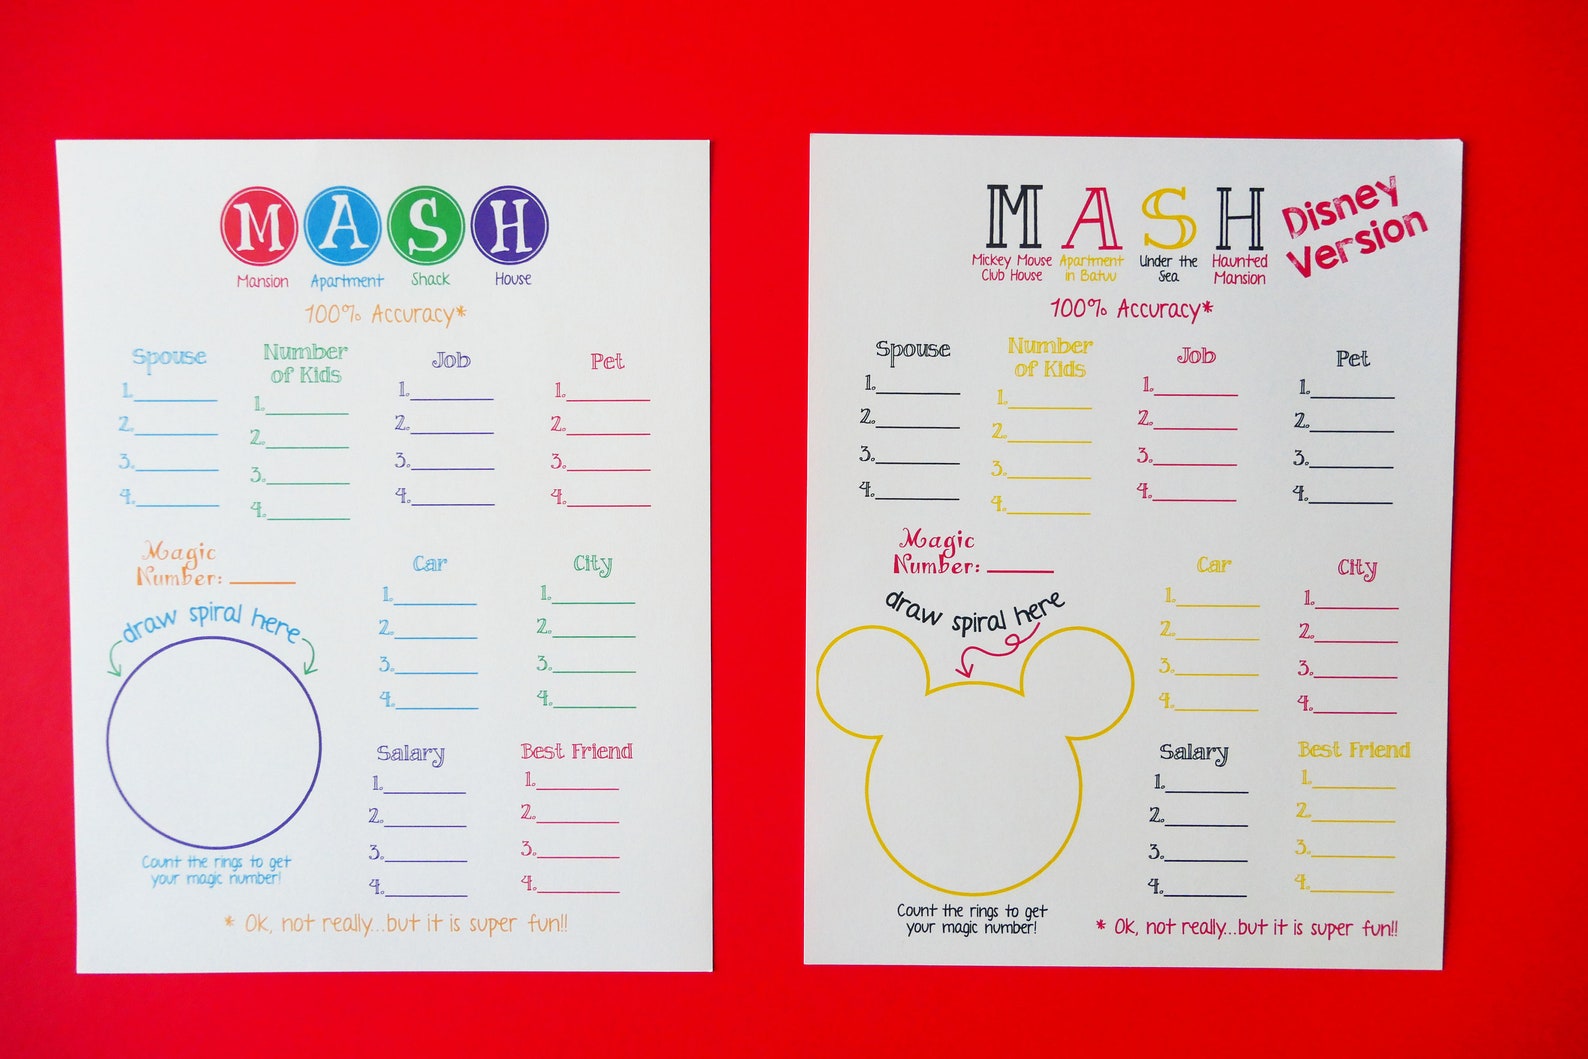 MASH
Mansion Apartment Shack House
100% Accuracy*
Spouse
1.
2.
3.
4.
Number
of Kids
1.
2.
3.
4.
Job
1.
2.
3.
4.
Pet
1.
2.
3.
4.
Magic
Number:
draw spiral here
Count the rings to get
your magic number!
Car
1.
2.
3.
4.
City
1.
2.
3.
4.
Salary
1.
2.
3.
4.
Best Friend
1.
2.
3.
4.
* Ok, not really...but it is super fun!!
MASH
Disney
Version
Mickey Mouse
Club House
Apartment
in Batuu
Under the
Sea
Haunted
Mansion
100% Accuracy*
Spouse
1.
2.
3.
4.
Number
of Kids
1.
2.
3.
4.
Job
1.
2.
3.
4.
Pet
1.
2.
3.
4.
Magic
Number:
draw spiral here
Count the rings to get
your magic number!
Car
1.
2.
3.
4.
City
1.
2.
3.
4.
Salary
1.
2.
3.
4.
Best Friend
1.
2.
3.
4.
* Ok, not really...but it is super fun!!